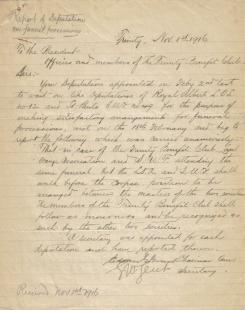 Report of Deputation
on funeral processions
Trinity, Nov 8th 1916
To The President
Officers and members of the Trinity Benefit Club.
Sirs:-
Your Deputation appointed in Feby 2nd last to
to wait on the Deputations of Royal Albert L.O.A.
for the purpose of
making satisfactory arrangements for funeral
processions, met on the 18th February and beg to
report the following which was carried unanimously.
That in case of the Trinity Benefit Club,
attending the
same funeral. that the L.O.A. and S.U.F. shall
walk before the Corpse, positions to be
arranged between the masters of the two societies
the members of the Trinity Benefit Club shall
follow as mourners and be recognized as
such by the other two societies.
A secretary was appointed for each
deputation and have reported thereon.
Secretary.
Received Nov 1916